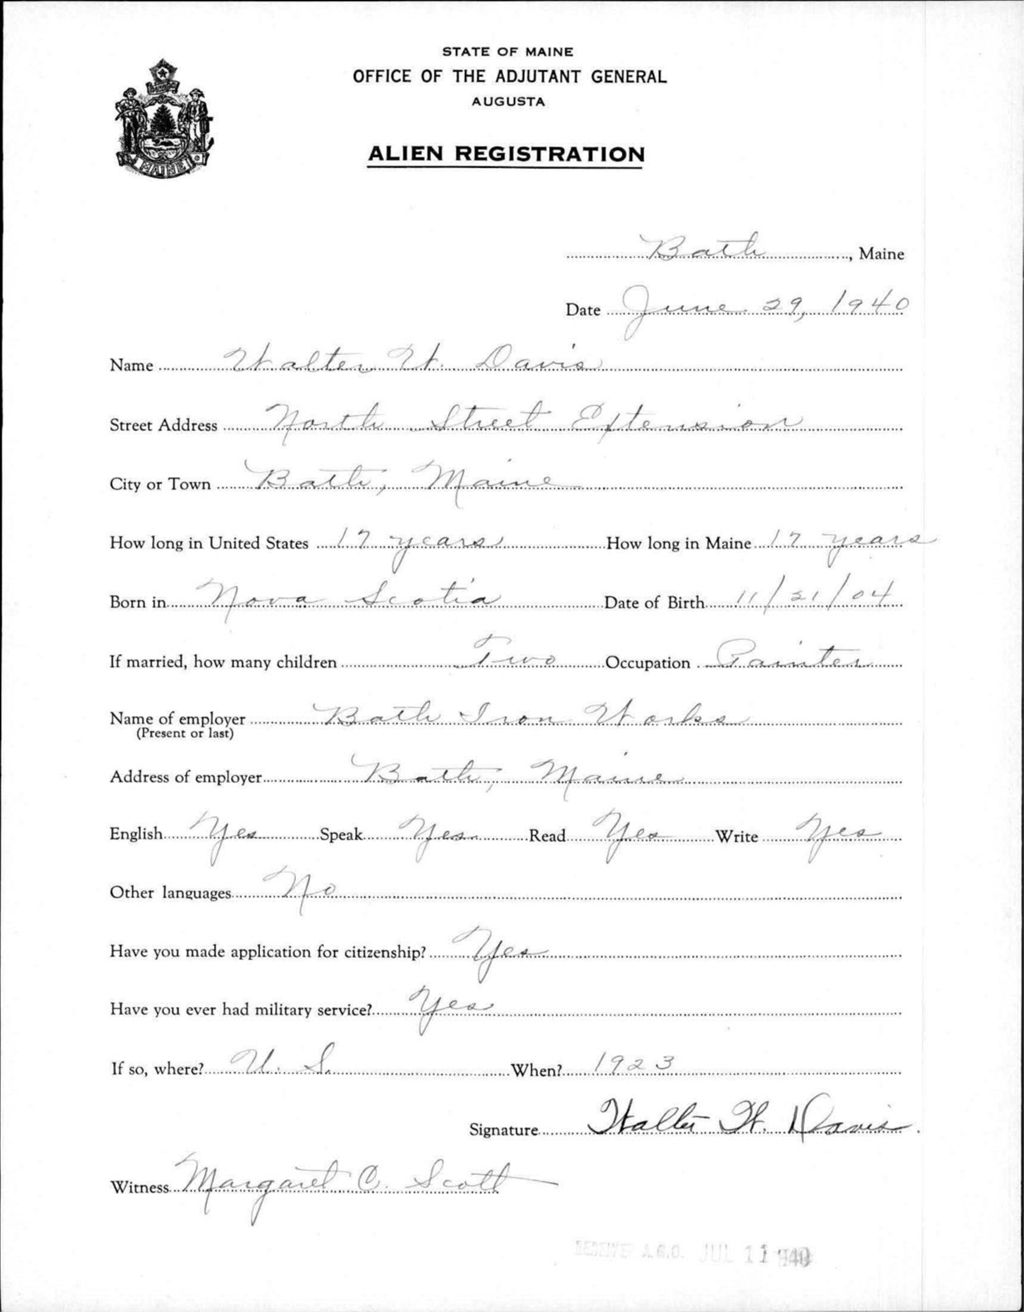 STATE OF MAINE
OFFICE OF THE ADJUTANT GENERAL
AUGUSTA
ALIEN REGISTRATION
MAINE
Bath, Maine
Date June 29, 1940
Name Walter W. Davis
Street Address North Street Extension
City or Town Bath, Maine
How long in United States 17 years How long in Maine 17 years
Born in Nova Scotia Date of Birth 11/21/04
If married, how many children Two Occupation Painter
Name of employer Bath Iron Works
(Present or last)
Address of employer Bath, Maine
English Yes Speak Yes Read Yes Write Yes
Other languages No
Have you made application for citizenship? Yes
Have you ever had military service? Yes
If so, where? U. S. When? 1923
Signature Walter W. Davis.
Witness Margaret C. Scott
RECEIVED A.G.O. JUL 11 1940